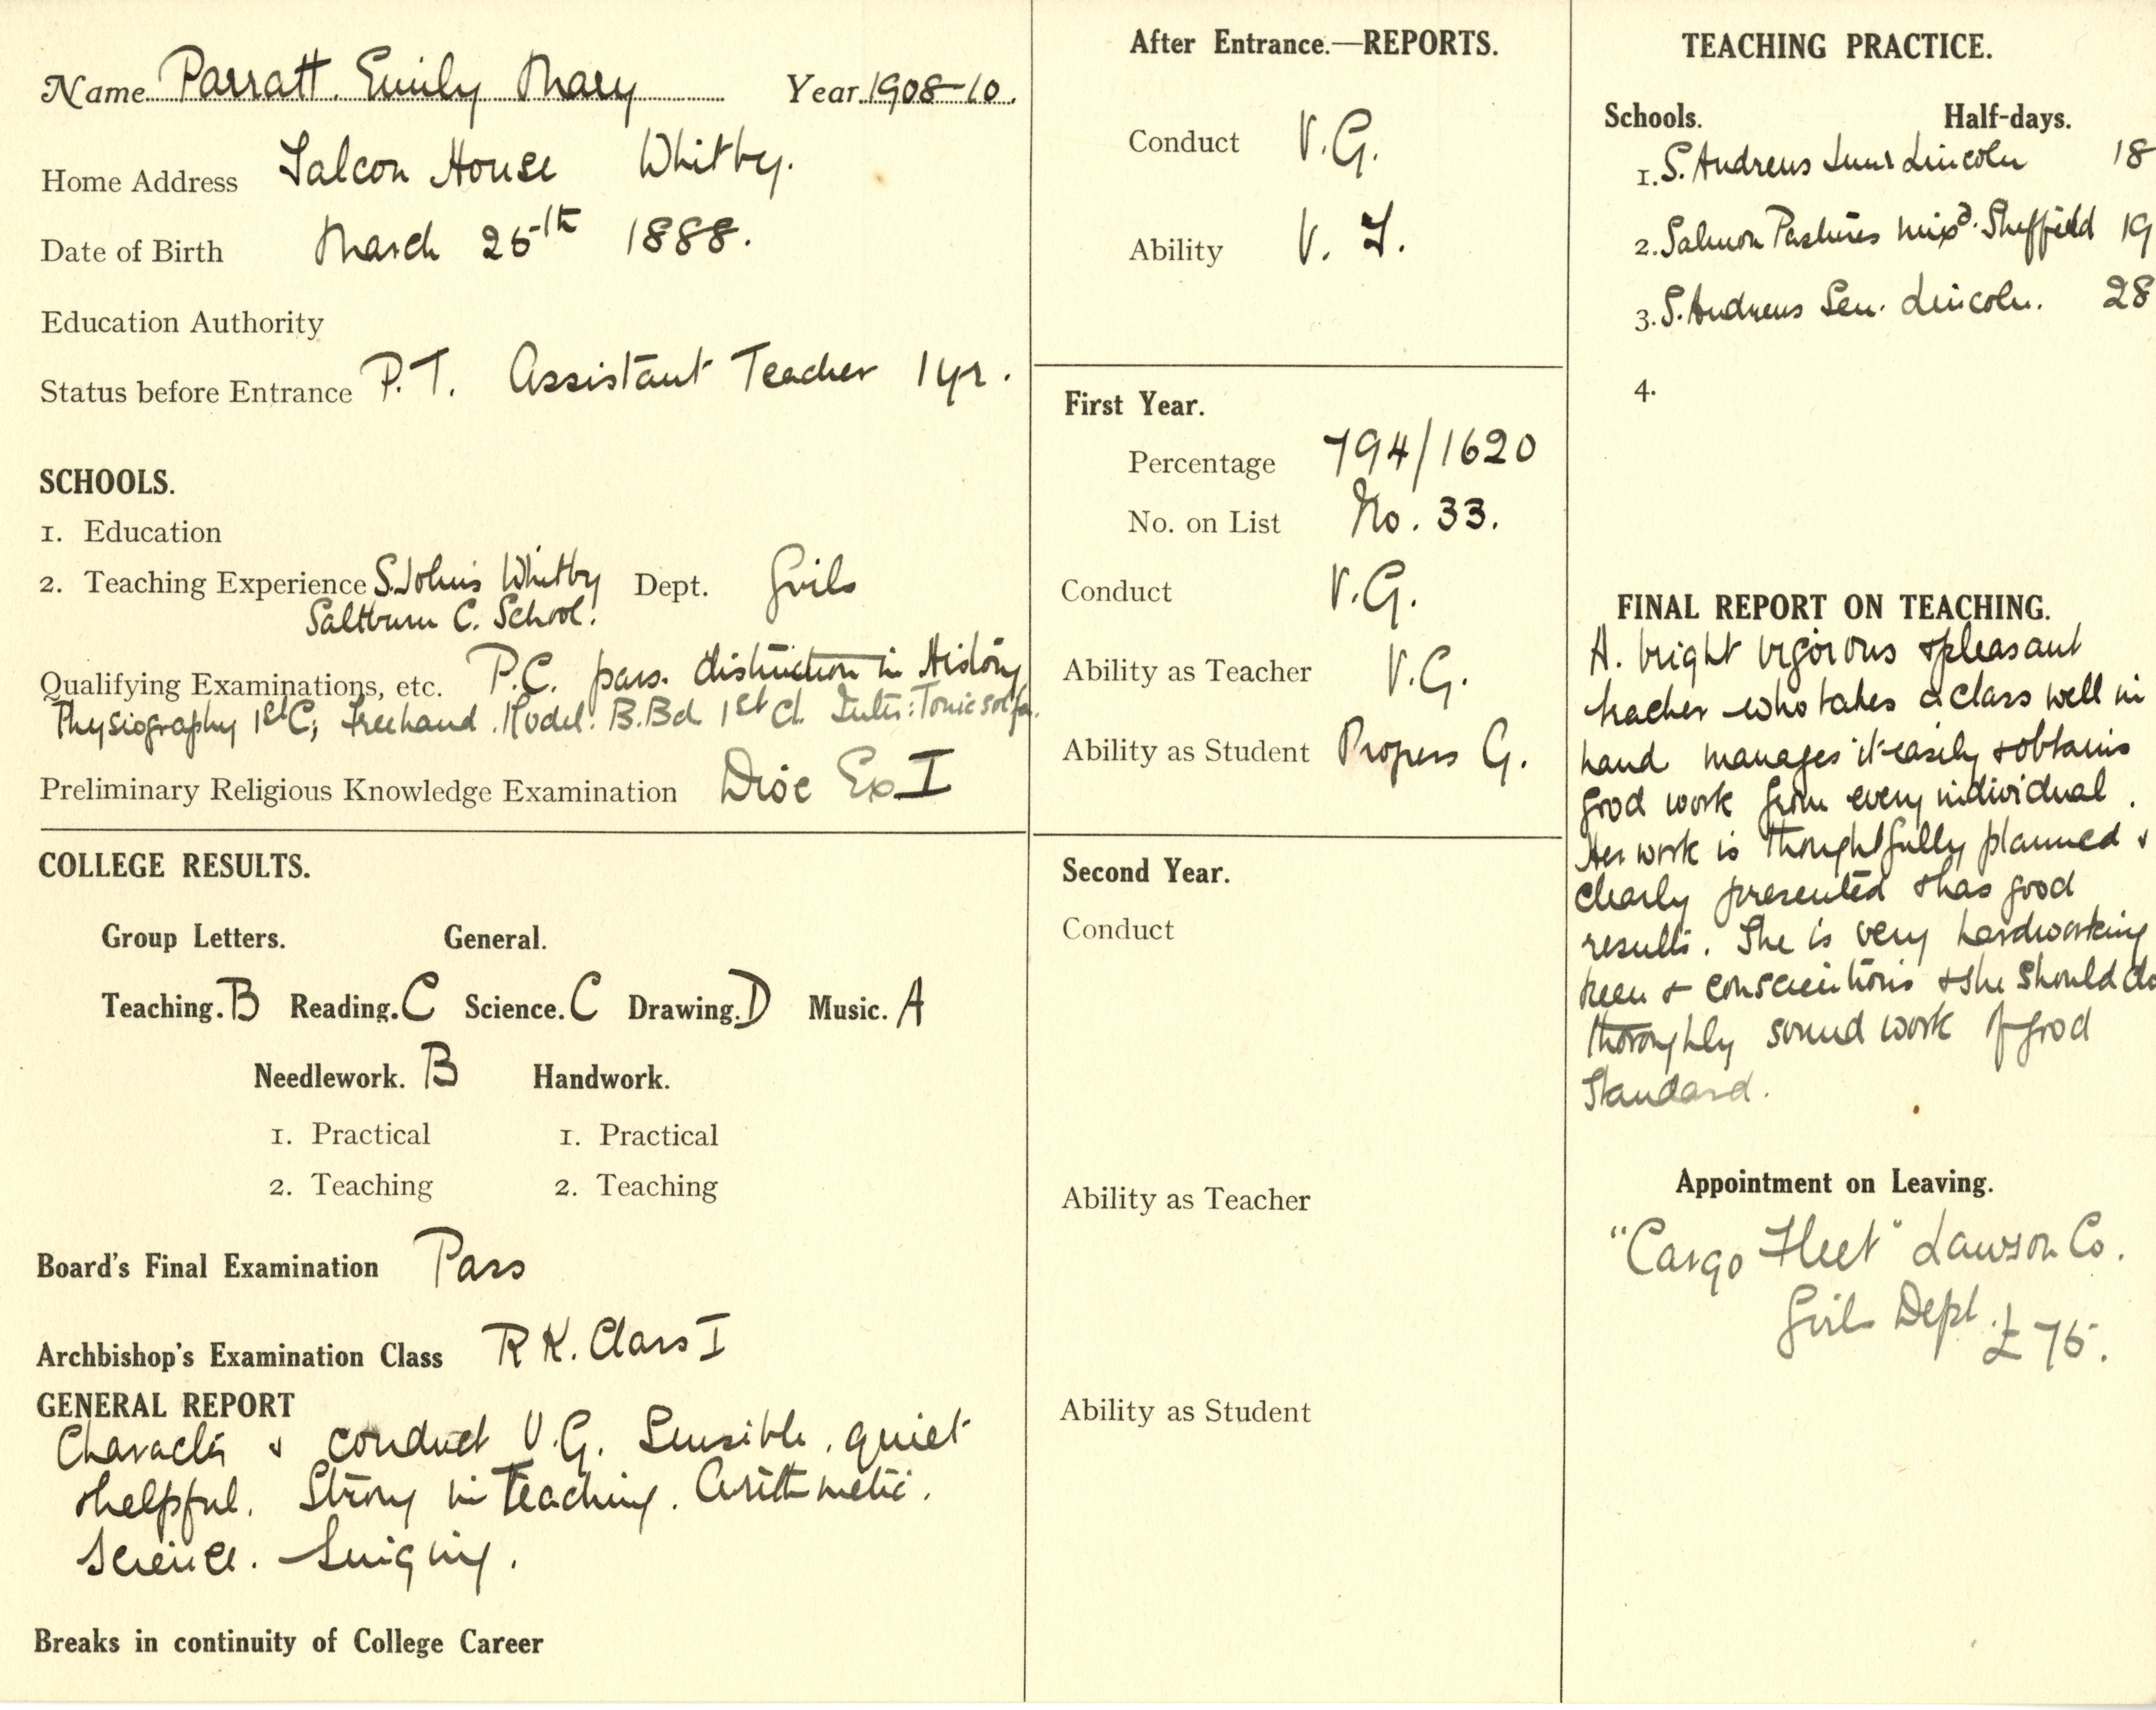 Name Parratt. Emily Mary Year 1908-10.
Home Address Falcon House Whitby.
Date of Birth March 25th 1888.
Education Authority
Status before Entrance P.T. Assistant Teacher 1 yr.
SCHOOLS.
1. Education
2. Teaching Experience S. John's Whitby Dept. Girls
Saltburn C. School.
Qualifying Examinations, etc. P.C. pass. distinction in History
Physiography 1st C; Freehand. Model. B.Bd 1st Cl. Inter: Tonic solfa.
Preliminary Religious Knowledge Examination Dioc Ex I
COLLEGE RESULTS.
Group Letters. General.
Teaching. B Reading. C Science. C Drawing. D Music. A
Needlework. B Handwork.
1. Practical 1. Practical
2. Teaching 2. Teaching
Board's Final Examination Pass
Archbishop's Examination Class R K. Class I
GENERAL REPORT
Character & conduct V.G. Sensible, quiet
& helpful. Strong in Teaching. Arithmetic.
Science. Singing.
Breaks in continuity of College Career
After Entrance.—REPORTS.
Conduct V.G.
Ability V. F.
First Year.
Percentage 794/1620
No. on List No. 33.
Conduct V.G.
Ability as Teacher V.G.
Ability as Student Progress G.
Second Year.
Conduct
Ability as Teacher
Ability as Student
TEACHING PRACTICE.
Schools. Half-days.
1. S. Andrews Junr Lincoln 18
2. Salmon Pastures mixd. Sheffield 19
3. S. Andrews Sen. Lincoln. 28
4.
FINAL REPORT ON TEACHING.
A. bright vigorous & pleasant
teacher who takes a class well in
hand manages it easily & obtains
good work from every individual.
Her work is thoughtfully planned &
clearly presented & has good
results. She is very hardworking
keen & conscientious & she should do
thoroughly sound work of good
Standard.
Appointment on Leaving.
"Cargo Fleet" Lawson Co.
Girls Dept.
£75.